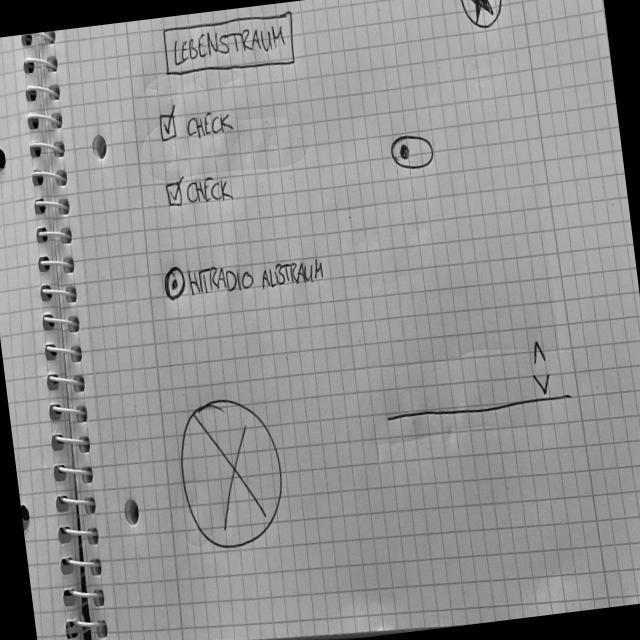 LEBENSTRAUM
CHECK
CHECK
HITRADIO AUSTRALIA